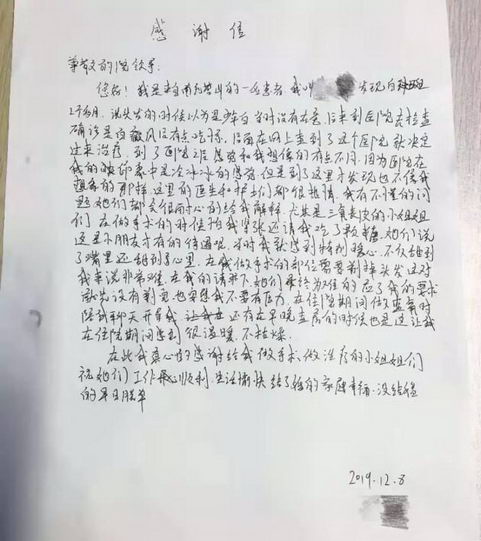 感谢信
尊敬的院领导:
您好!我是来自南充营山的一名患者 我叫 发现白斑
2个月,说头发的时候以为是少年白当时没有在意,后来到医院去检查
确诊是白癜风没有点吃惊,后面在网上查到了这个医院就决定
过来治疗,到了医院之后感觉和我想像的有点不同,因为医院在
我的印象中是冷冰冰的感觉,但是到了这里才发现也不像我
想象的那样这里的医生和护士们都很热情,我有不懂的问
题她们都会很耐心的给我解释,尤其是三氧表皮的小姐姐
们在做手术的时候怕我紧张还请我吃了颗糖她们说
这是小朋友才有的待遇呢,当时我就感到特别暖心,不仅甜到
了嘴里还甜到了心里,在我做手术的部位需要剃掉头发这对
我来说非常难,在我的请求下她们最终为难的应了我的要求
就先没有剃完也安慰我不要有压力,在住院期间做监氧时
陪我聊天开导我 还有在早晚查房的时候也是这让我
在住院期间感到很温暖,不枯燥。
在此我衷心的感谢给我做手术,做治疗的小姐姐们
祝她们工作顺心顺利,生活愉快 结了婚的家庭幸福,没结婚
的早日脱单
2019.12.8